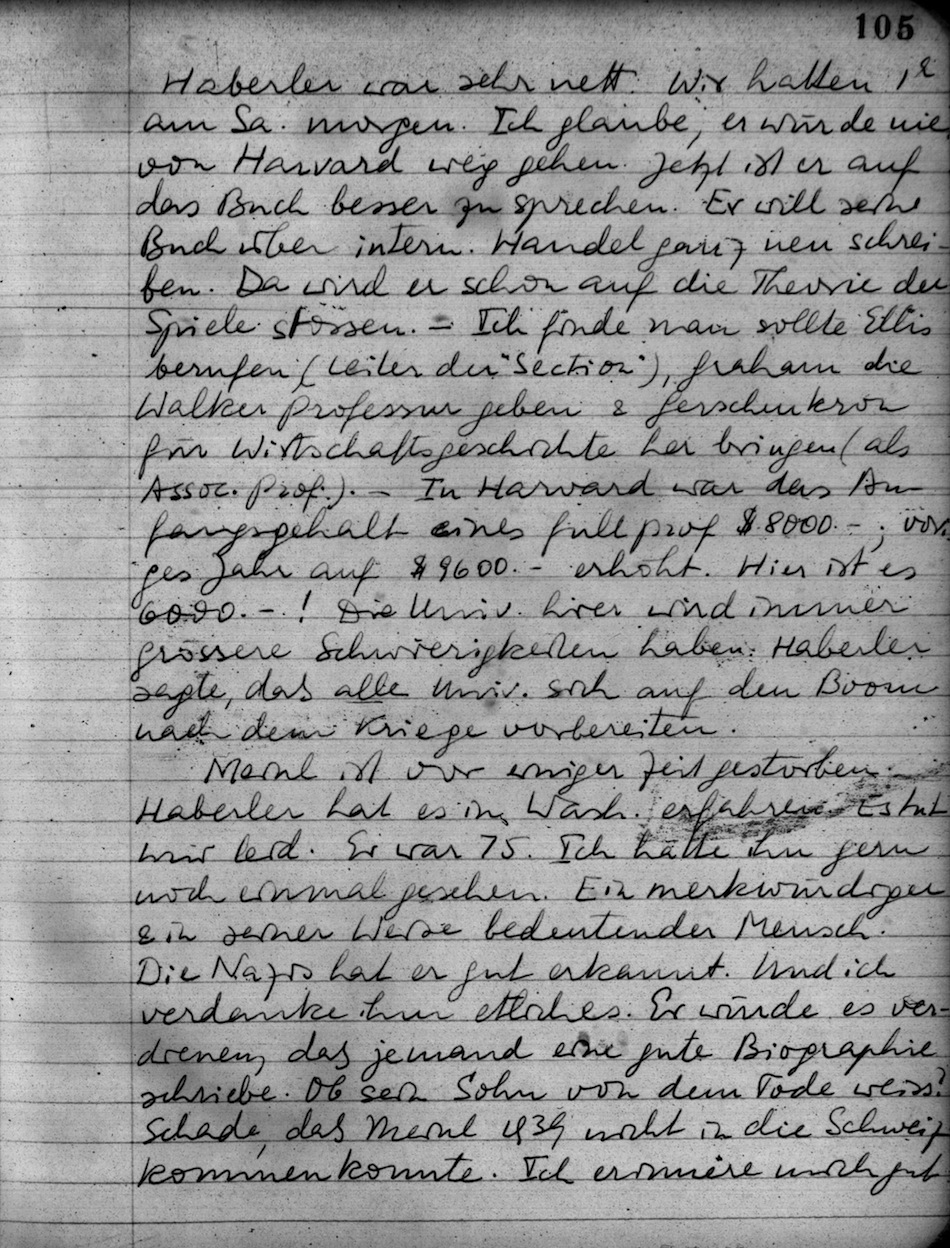 105
Haberler war sehr nett. Wir hatten 1ʰ
am Sa. morgen. Ich glaube, er würde nie
von Harvard weg gehen. Jetzt ist er auf
das Buch besser zu sprechen. Er will sein
Buch über intern. Handel ganz neu schrei-
ben. Da wird er schon auf die Theorie der
Spiele stossen. – Ich finde man sollte Ellis
berufen (Leiter der "Section"), Graham die
Walker Professur geben & Gerschenkron
für Wirtschaftsgeschichte her bringen (als
Assoc. Prof.). – In Harvard war das An-
fangsgehalt eines full prof $ 8000.– ; vori-
ges Jahr auf $ 9600.– erhöht. Hier ist es
6000.– ! Die Univ. hier wird immer
grössere Schwierigkeiten haben. Haberler
sagte, das alle Univ. sich auf den Boom
nach dem Kriege vorbereiten.
Meinl ist vor einiger Zeit gestorben.
Haberler hat es in Wash. erfahren. Es tut
mir leid. Er war 75. Ich hätte ihn gern
noch einmal gesehen. Ein merkwürdiger
& in seiner Weise bedeutender Mensch.
Die Nazis hat er gut erkannt. Und ich
verdanke ihm etliches. Er würde es ver-
dienen, das jemand eine gute Biographie
schriebe. Ob sein Sohn von dem Tode weiss?
Schade, das Meinl 1939 nicht in die Schweiz
kommen konnte. Ich erinnere mich gut